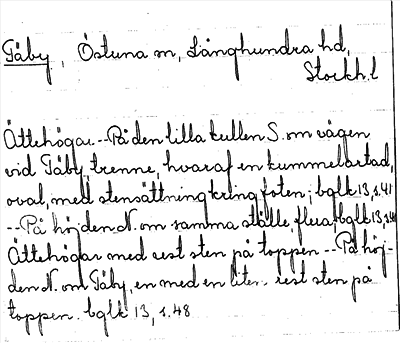 Täby, Östuna sn, Långhundra hd,
Stockh.l
Ättehögar.--På den lilla kullen S. om vägen
vid Täby, trenne, hvaraf en kummelartad,
oval, med stensättning kring foten; bglk 13, s.41
--På höjden N. om samma ställe, flera, bglk 13, s.41
Ättehögar med rest sten på toppen--På höj-
den N. om Täby, en med en liten rest sten på
toppen. bglk 13, s.48